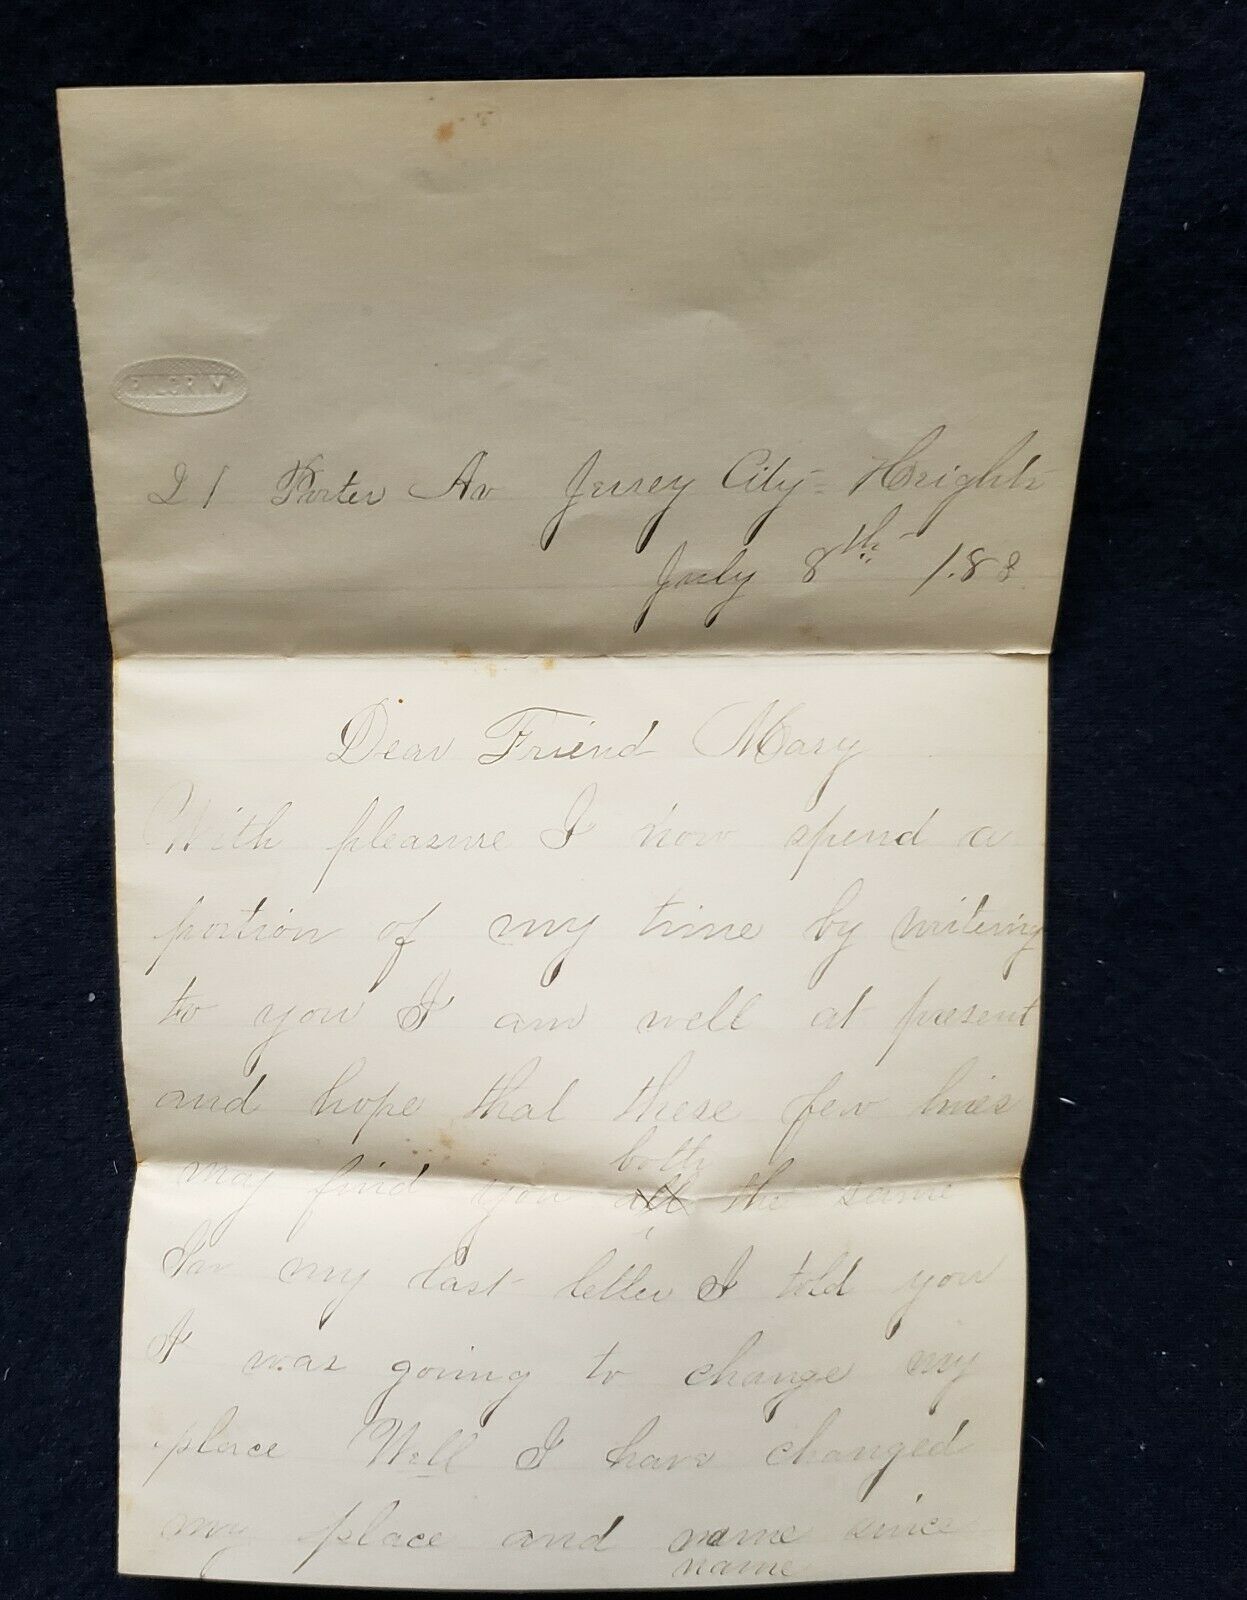 PILGRIM
21 Porter Av Jersey City Heights
July 8th 188
Dear Friend Mary
With pleasure I now spend a
portion of my time by writeing
to you I am well at present
and hope that these few lines
both
may find you all the same
In my last letter I told you
I was going to change my
place Well I have changed
my place and name since
name